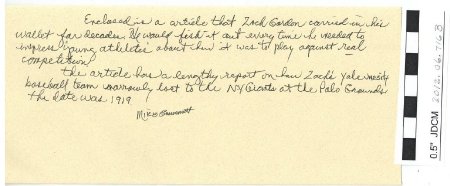 Enclosed is a article that Zach Gordon carried in his
wallet for decades. He would fish it out every time he needed to
impress young athletes about how it was to play against real
competition!
The article has a lengthy report on how Zach's Yale varsity
baseball team narrowly lost to the NY Giants at the Polo Grounds.
The date was 1919
Mike
0.5" JDCM
2012.46.716B